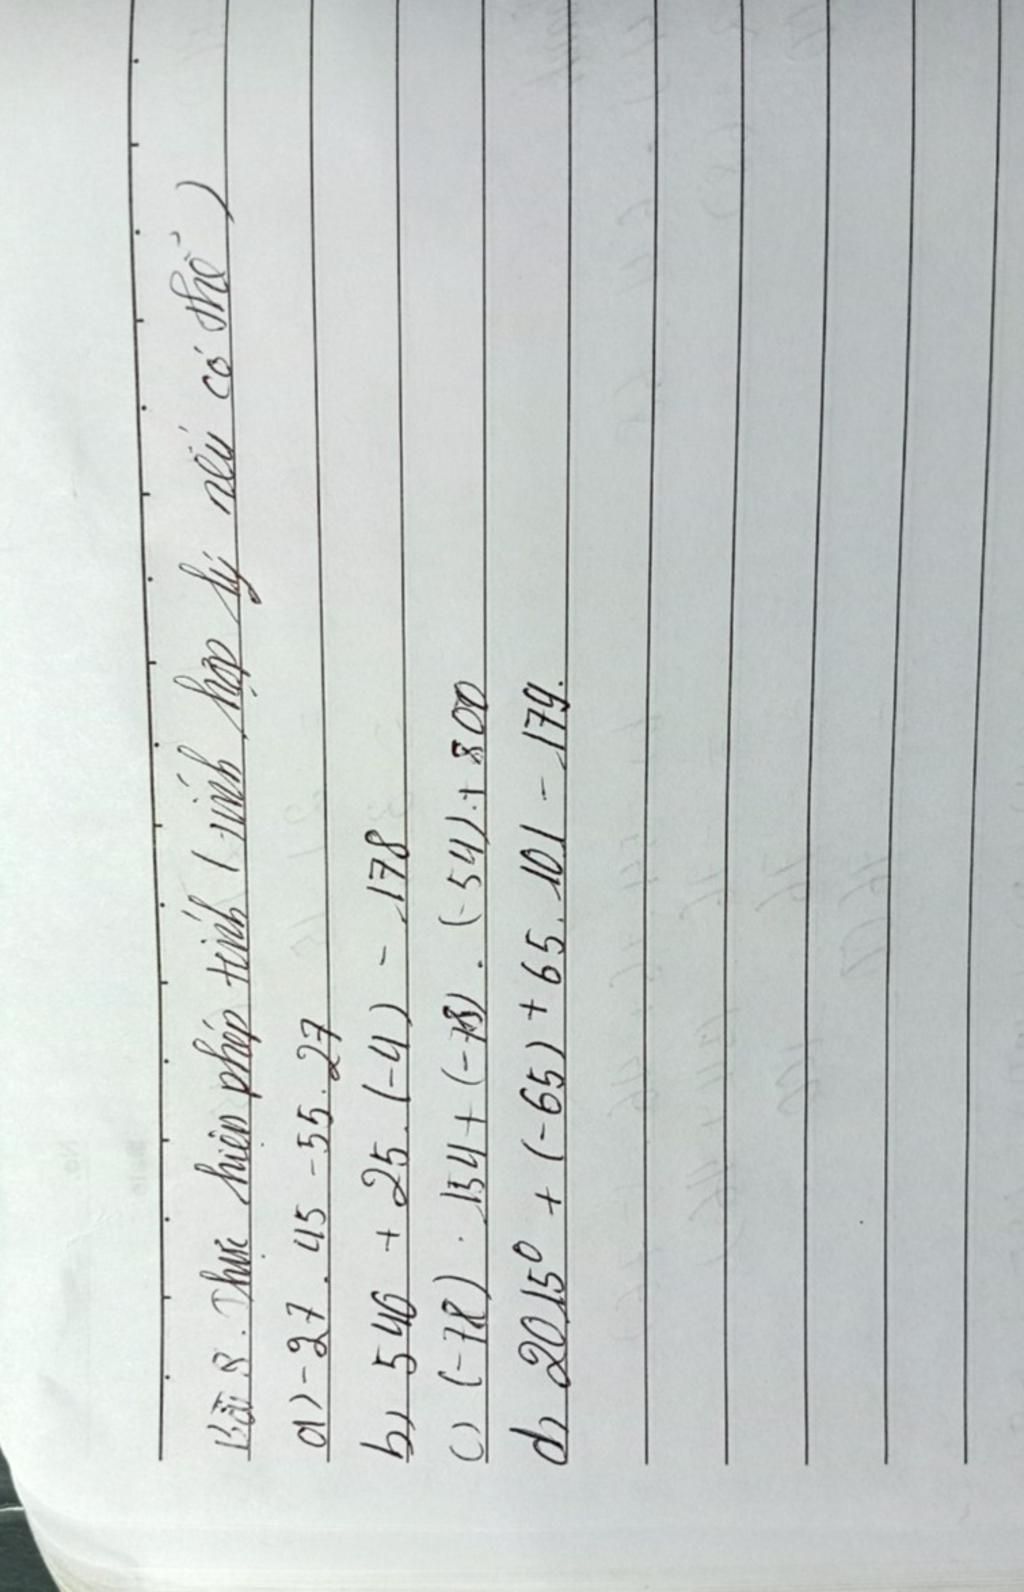 Bài 8. Thực hiện phép tính (tính hợp lý nếu có thể)
a) -27 . 45 - 55 . 27
b) 546 + 25 . (-4) - 178
c) (-78) . 154 + (-78) . (-54) + 800
d) 2015⁰ + (-65) + 65 . 101 - 179.